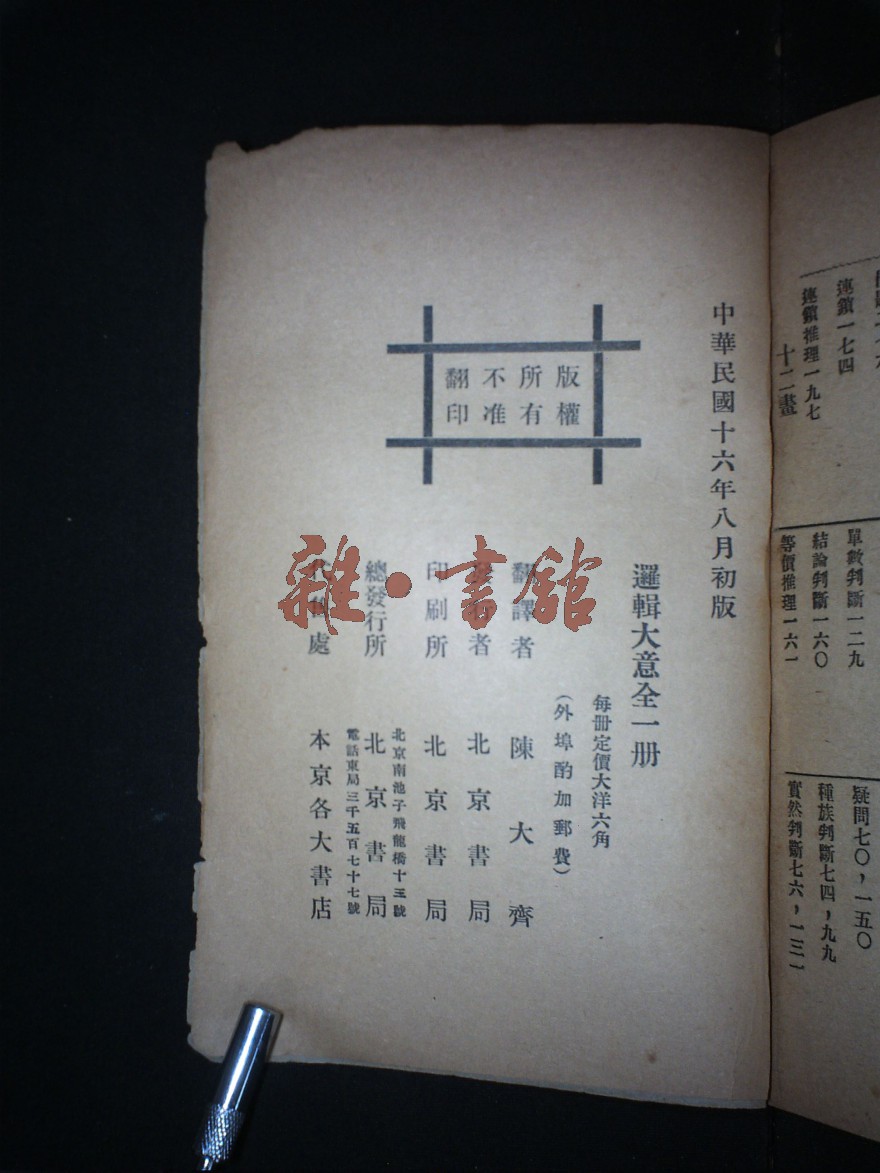 問題二一六
連鎖一七四
連鎖推理一九七
十二畫
單數判斷一二九
結論判斷一六〇
等價推理一六一
疑問七〇,一五〇
種族判斷七四,九九
實然判斷七六,一三一
中華民國十六年八月初版
版權
所有
不准
翻印
邏輯大意全一册
每册定價大洋六角
(外埠酌加郵費)
翻譯者 陳大齊
發行者 北京書局
印刷所 北京書局
北京南池子飛龍橋十三號
總發行所 北京書局
電話東局三千五百七十七號
代售處 本京各大書店
雜·書館